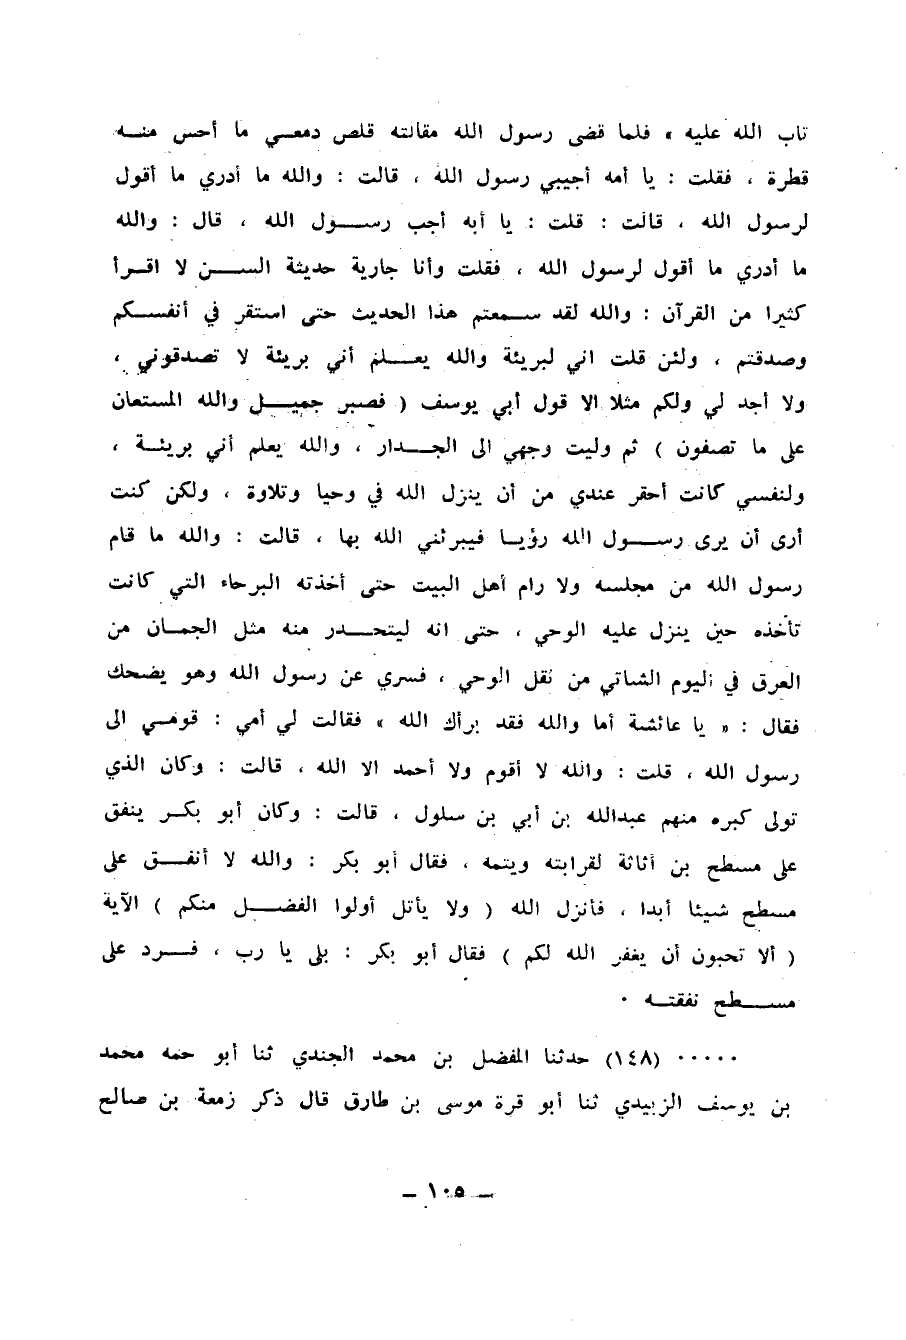 تاب الله عليه » فلما قضى رسول الله مقالته قلص دمعي ما أحس منه
قطرة ، فقلت : يا أمه أجيبي رسول الله ، قالت : والله ما أدري ما أقول
لرسول الله ، قالت : قلت : يا أبه أجب رسول الله ، قال : والله
ما أدري ما أقول لرسول الله ، فقلت وأنا جارية حديثة السن لا اقرأ
كثيرا من القرآن : والله لقد سمعتم هذا الحديث حتى استقر في أنفسكم
وصدقتم ، ولئن قلت اني لبريئة والله يعلم أني بريئة لا تصدقوني ،
ولا أجد لي ولكم مثلا الا قول أبي يوسف ( فصبر جميل والله المستعان
على ما تصفون ) ثم وليت وجهي الى الجدار ، والله يعلم أني بريئة ،
ولنفسي كانت أحقر عندي من أن ينزل الله في وحيا وتلاوة ، ولكن كنت
أرى أن يرى رسول الله رؤيا فيبرئني الله بها ، قالت : والله ما قام
رسول الله من مجلسه ولا رام أهل البيت حتى أخذته البرحاء التي كانت
تأخذه حين ينزل عليه الوحي ، حتى انه ليتحدر منه مثل الجمان من
العرق في اليوم الشاتي من نقل الوحي ، فسري عن رسول الله وهو يضحك
فقال : « يا عائشة أما والله فقد برأك الله » فقالت لي أمي : قومي الى
رسول الله ، قلت : والله لا أقوم ولا أحمد الا الله ، قالت : وكان الذي
تولى كبره منهم عبدالله بن أبي بن سلول ، قالت : وكان أبو بكر ينفق
على مسطح بن أثاثة لقرابته ويتمه ، فقال أبو بكر : والله لا أنفق على
مسطح شيئا أبدا ، فأنزل الله ( ولا يأتل أولوا الفضل منكم ) الآية
( ألا تحبون أن يغفر الله لكم ) فقال أبو بكر : بلى يا رب ، فرد على
مسطح نفقته .
..... (١٤٨) حدثنا المفضل بن محمد الجندي ثنا أبو حمه محمد
بن يوسف الزبيدي ثنا أبو قرة موسى بن طارق قال ذكر زمعة بن صالح
– ١٠٥ –